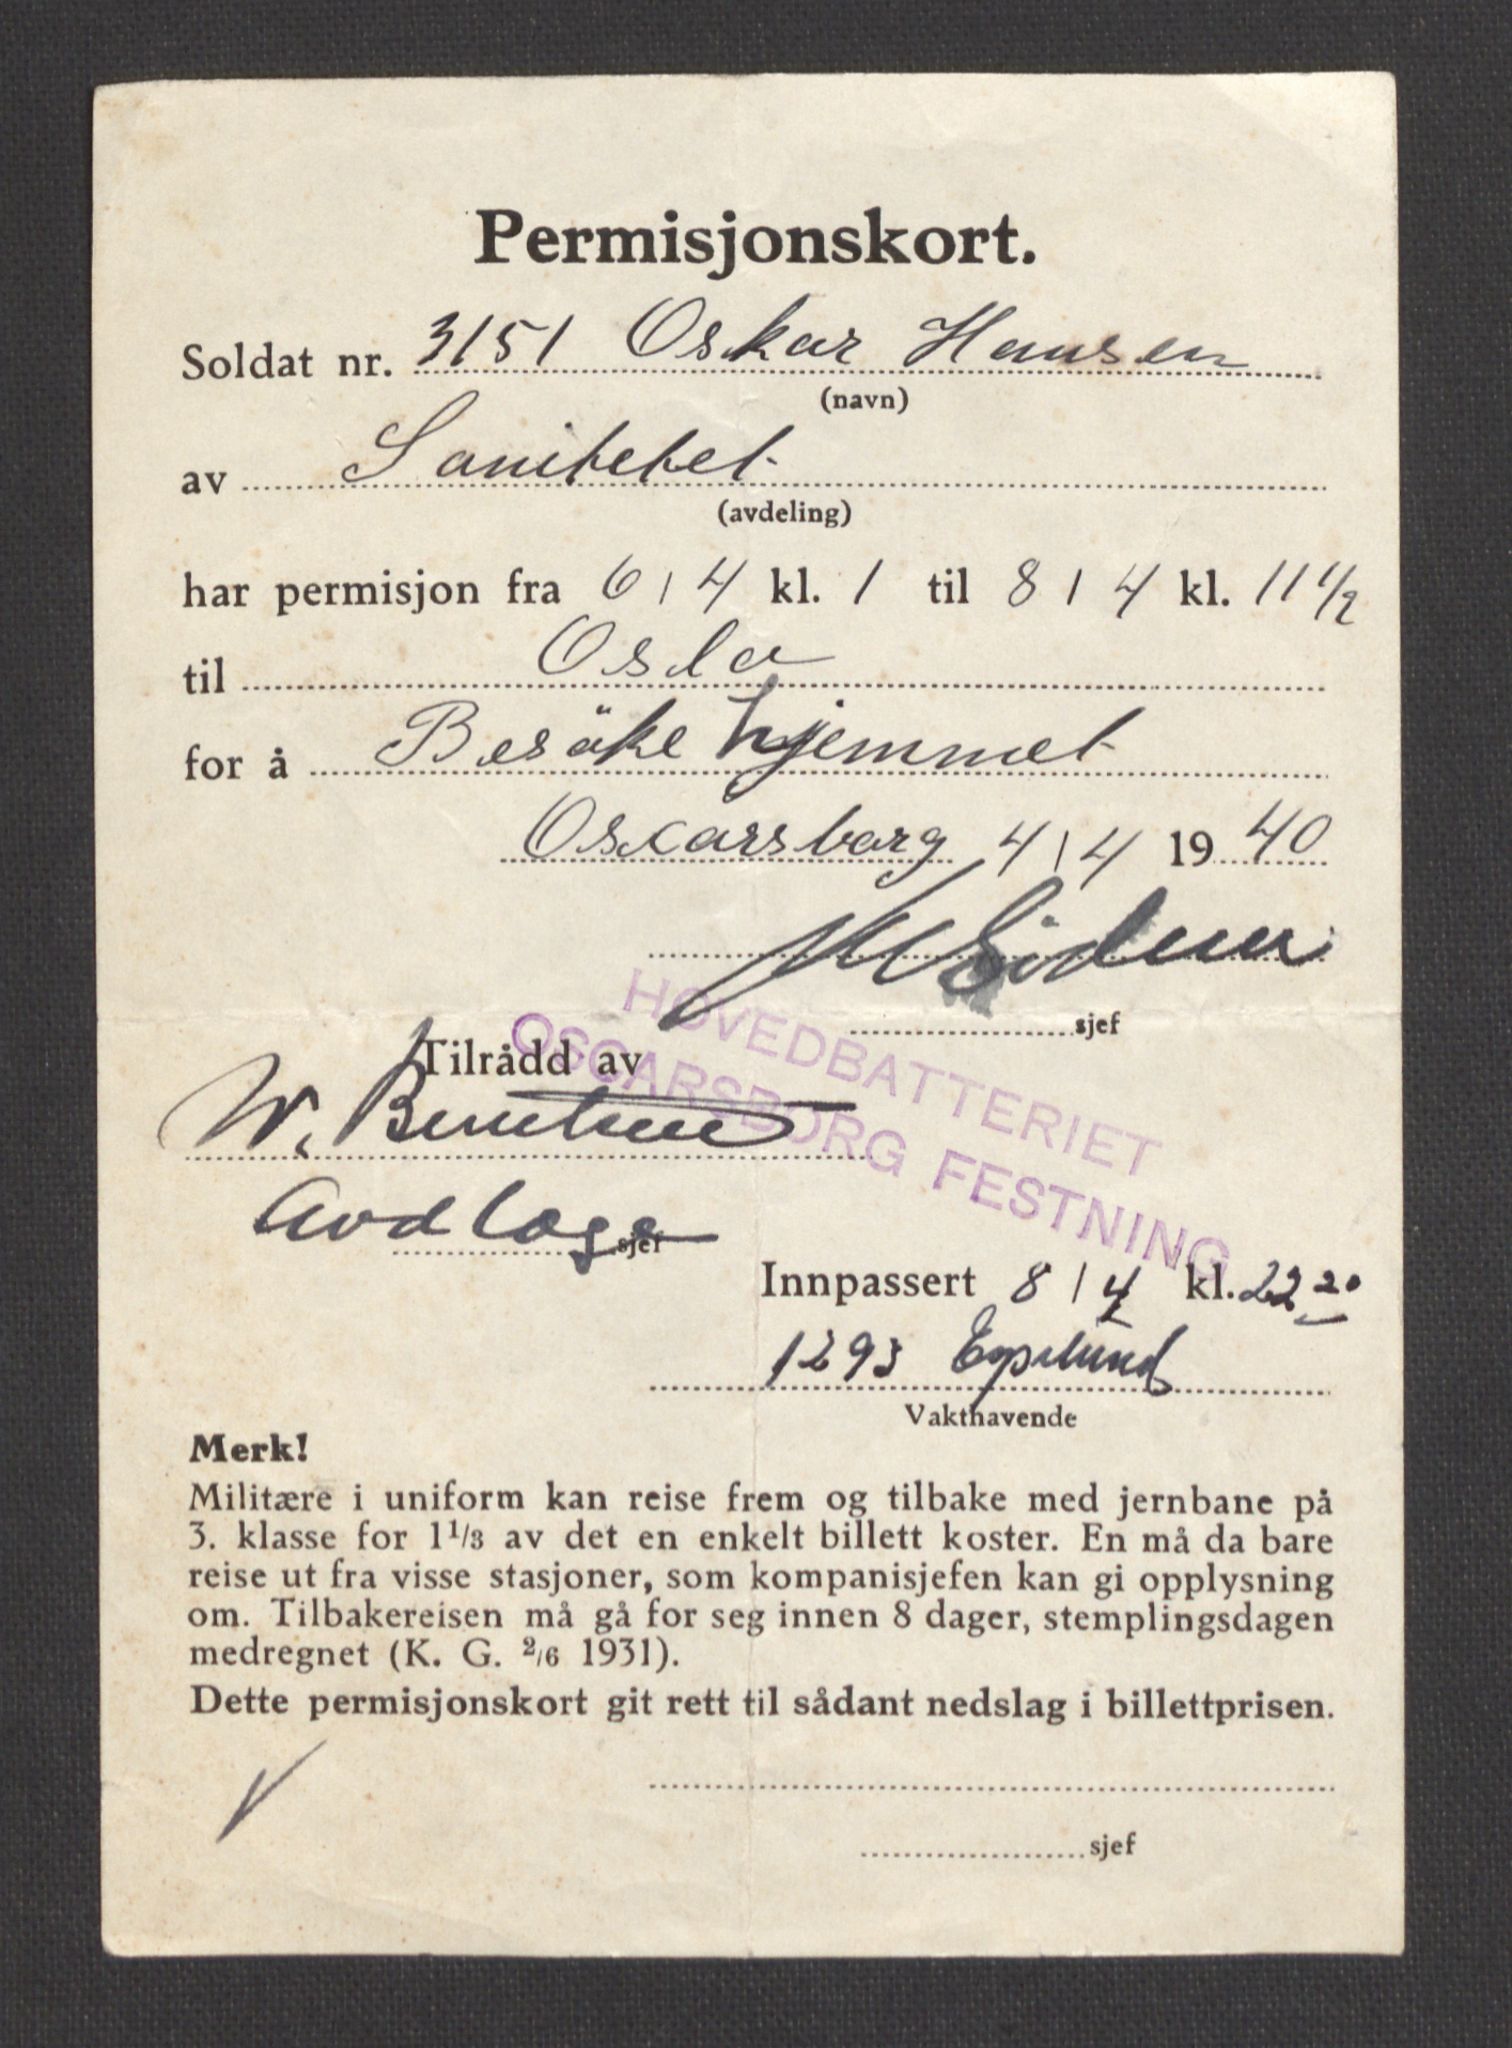 Permisjonskort.
Soldat nr. 3151 Oskar Hansen
(navn)
av Sanitetet
(avdeling)
har permisjon fra 6 / 4 kl. 1 til 8 / 4 kl. 11 1/2
til Oslo
for å Besöke hjemmet
Oscarsborg 4 / 4 19 40
sjef
HOVEDBATTERIET
OSCARSBORG FESTNING
Tilrådd av
W. Berntsen
Avd læge
sjef
Innpassert 8 / 4 kl. 22 20
1293
Vakthavende
Merk!
Militære i uniform kan reise frem og tilbake med jernbane på
3. klasse for 1 1/3 av det en enkelt billett koster. En må da bare
reise ut fra visse stasjoner, som kompanisjefen kan gi opplysning
om. Tilbakereisen må gå for seg innen 8 dager, stemplingsdagen
medregnet (K. G. 2/6 1931).
Dette permisjonskort git rett til sådant nedslag i billettprisen.
sjef